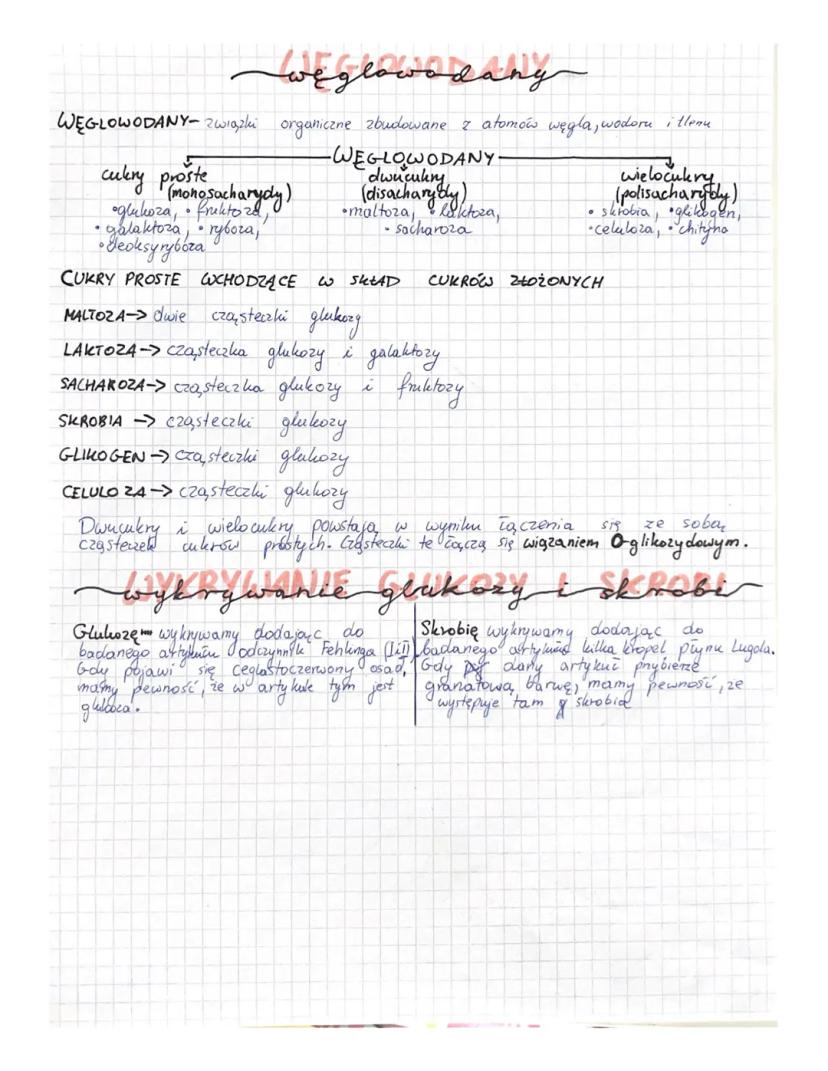 WĘGLOWODANY
węglowodany
WĘGLOWODANY- związki organiczne zbudowane z atomów węgla, wodoru i tlenu
WĘGLOWODANY
cukry proste (monosacharydy)
•glukoza, • fruktoza,
• galaktoza, • ryboza,
•deoksyryboza
dwucukry (disacharydy)
•maltoza, • laktoza,
• sacharoza
wielocukry (polisacharydy)
• skrobia, •glikogen,
•celuloza, • chityna
CUKRY PROSTE WCHODZĄCE W SKŁAD CUKRÓW ZŁOŻONYCH
MALTOZA-> dwie cząsteczki glukozy
LAKTOZA-> cząsteczka glukozy i galaktozy
SACHAROZA-> cząsteczka glukozy i fruktozy
SKROBIA -> cząsteczki glukozy
GLIKOGEN-> cząsteczki glukozy
CELULOZA-> cząsteczki glukozy
Dwucukry i wielocukry powstają w wyniku łączenia się ze sobą
cząsteczek cukrów prostych. Cząsteczki te łączą się wiązaniem O-glikozydowym.
WYKRYWANIE GLUKOZY I SKROBI
wykrywanie glukozy i skrobi
Glukozę wykrywamy dodając do
badanego artykułu odczynnik Fehlinga (I i II)
Gdy pojawi się ceglastoczerwony osad,
mamy pewność, że w artykule tym jest
glukoza.
Skrobię wykrywamy dodając do
badanego artykułu kilka kropel płynu Lugola.
Gdy dany artykuł przybierze
granatową barwę, mamy pewność, że
występuje tam skrobia